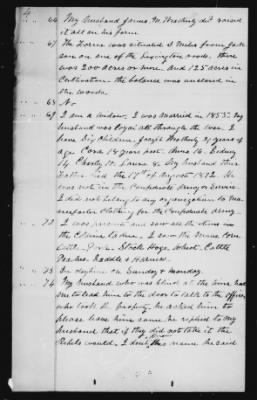 4
66 My husband James M. Weatherly did raised
it all on his farm
67 The Farm was situated 5 miles from Jack
son on one of the Lexington roads. there
was 200 acres or more. And 125 acres in
Cultivation the balance was uncleared in
the woods.
68 No
69 I am a widow. I was married in 1855. My
husband was loyal all through the war. I
have Six Children. Joseph Weatherly 21 years of
age Cora 18 Anna 16 Sidney
14 Charly 10 Laura 8. My husband their
Father died the 17th of August 1872. He
was not in the Confederate Army or Service
I did not belong to any organization to
manufactor Clothing for the Confederate Army.
72 I was present and saw the items in
the Claim taken. I saw the Mules Corn
Oats Pork Stock Hogs, Wheat, Cattle
Saddle & Harness.
73 In daytime on Sunday & Monday.
74 My husband who was blind at the time had
me to lead him to the door to talk to the officer
who took the property. he asked him to
please leave him some he replied to my
husband that if they did not take it the
Rebels would. I don't his name. he said